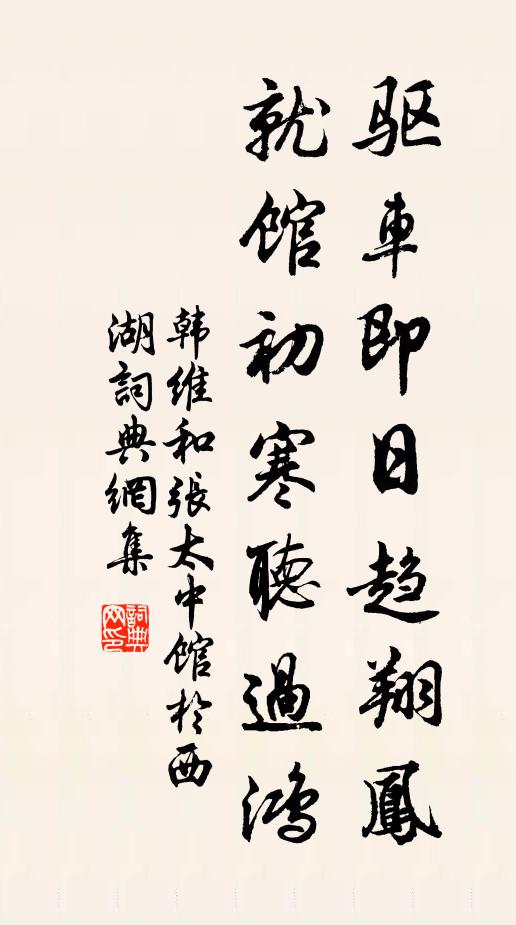 驱車即日趋翔鳳
就馆初寒聽過鸿
韩維和張太中馆於西
湖詞典網集
詞典网印